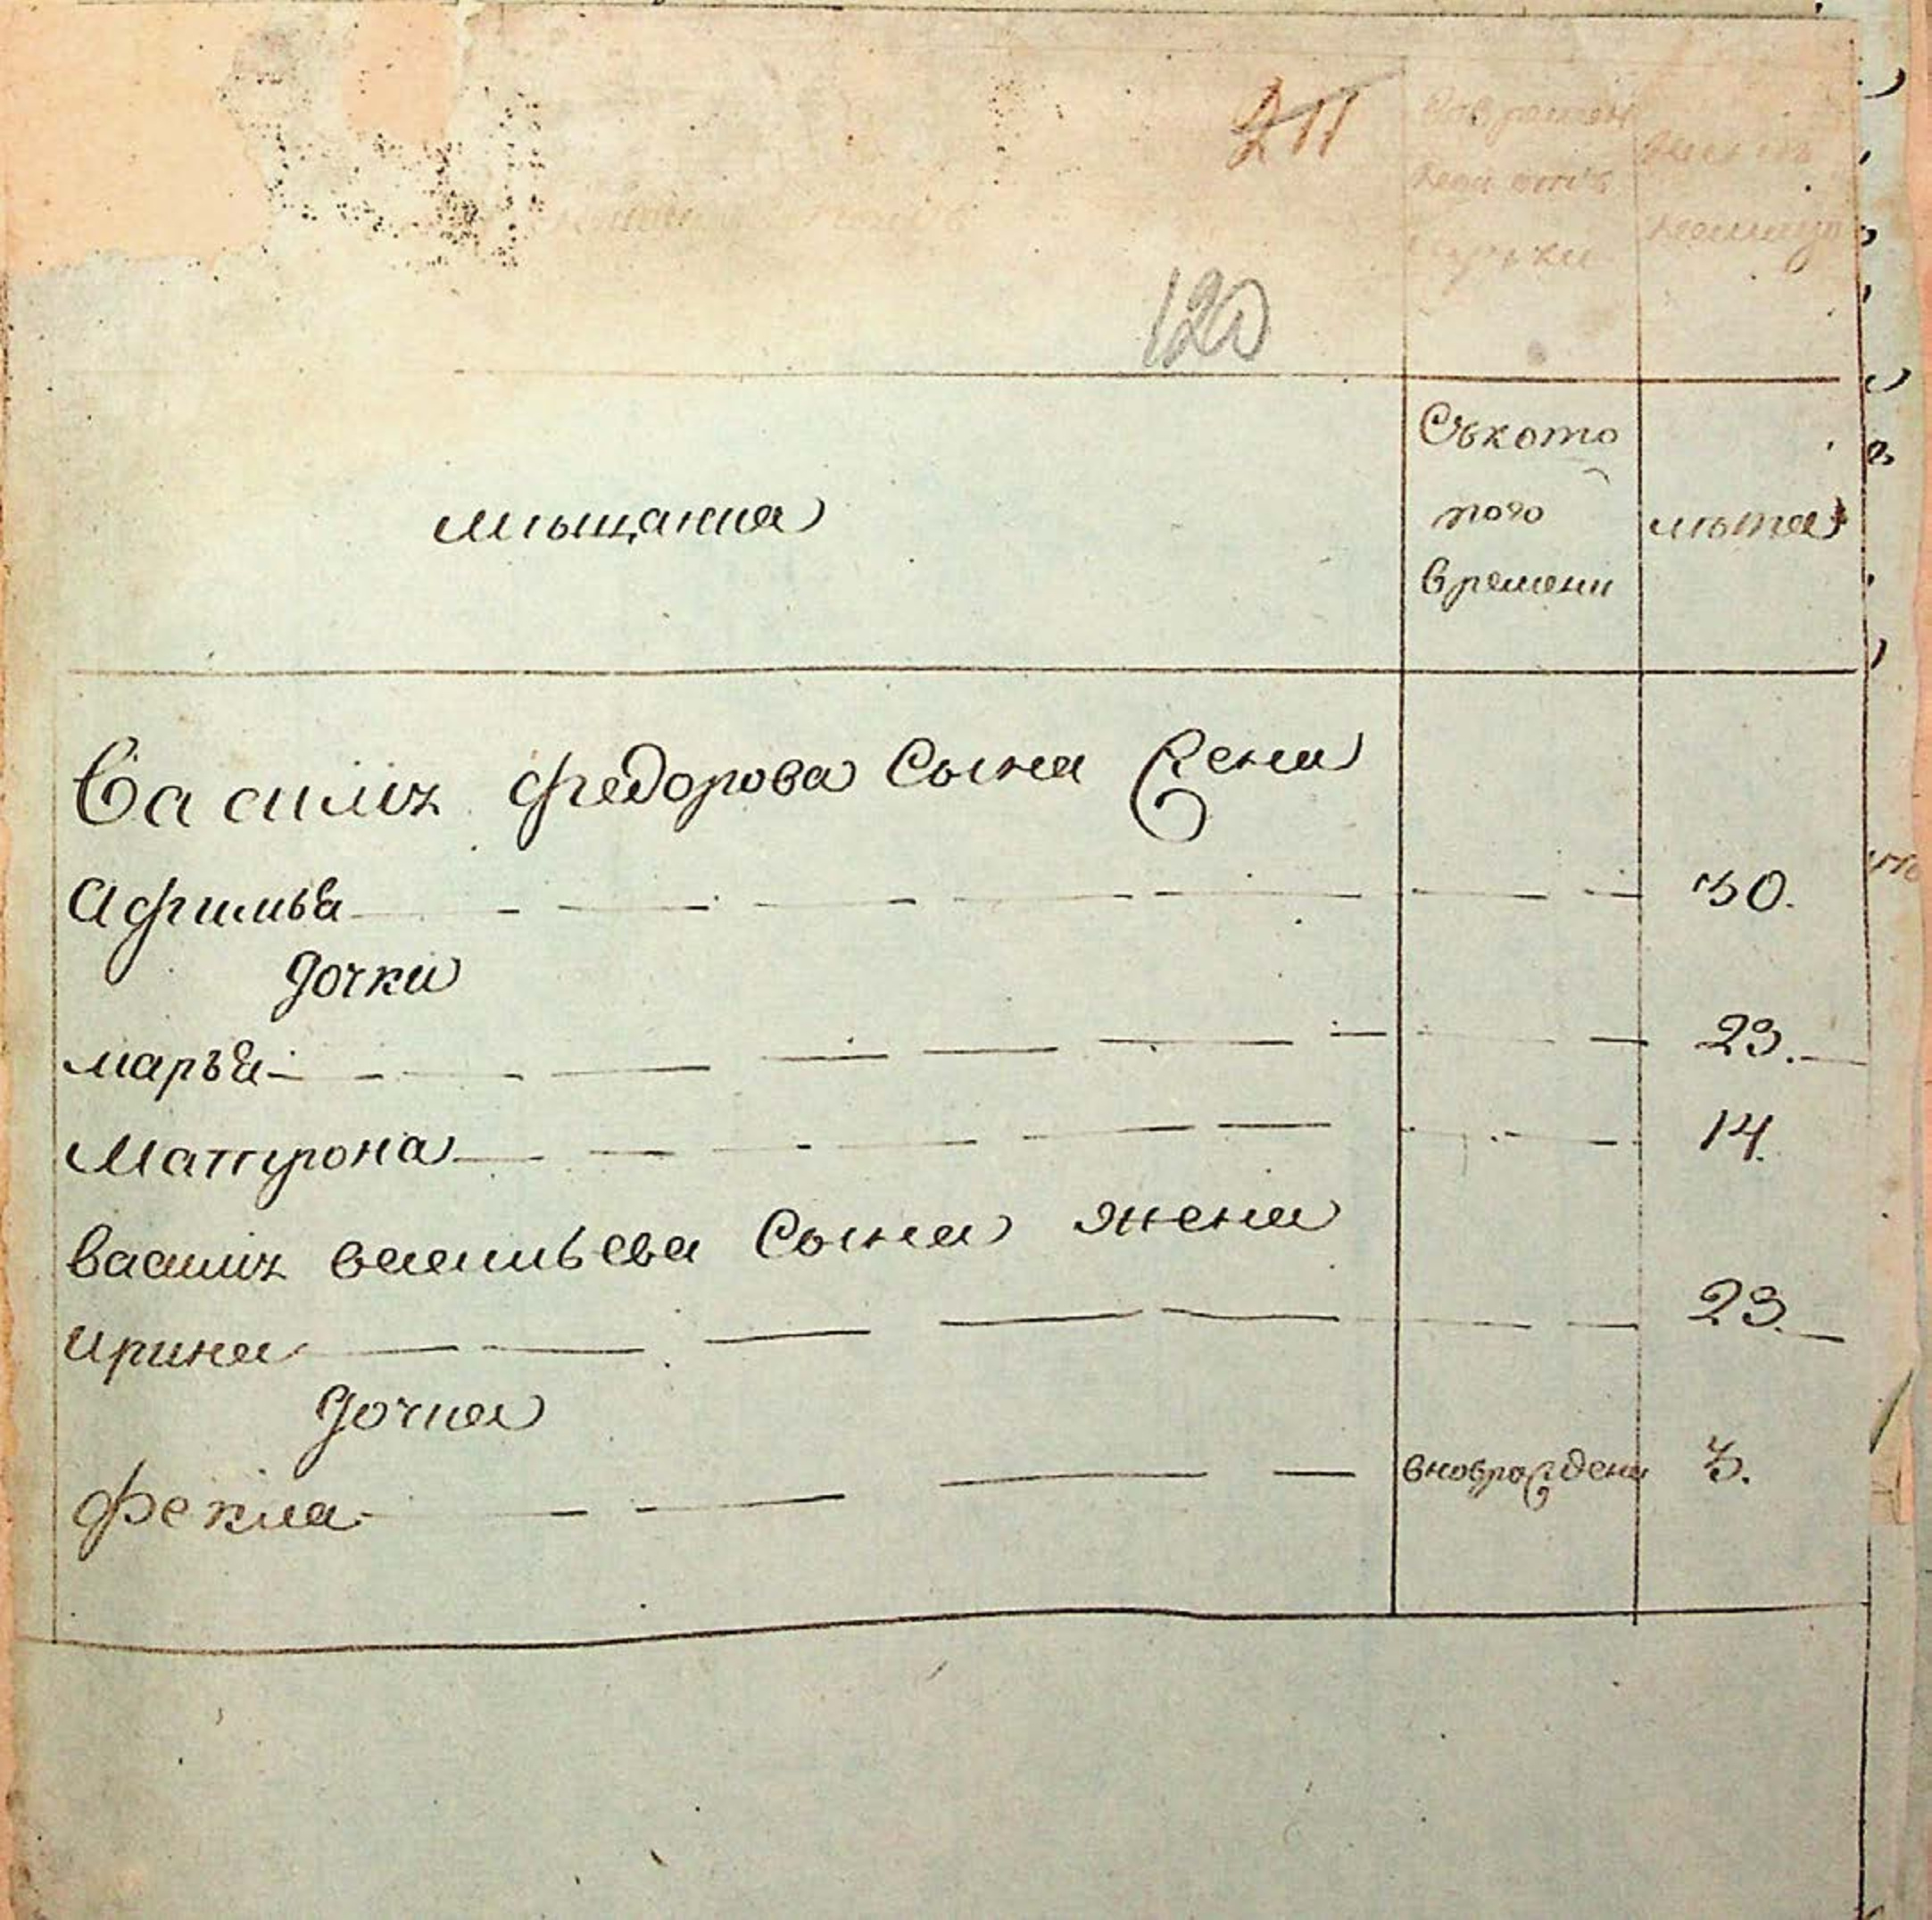 211
120
мѣщанка
Съкото
рого
времени
лѣта
Василия федорова Сына жена
Афимья 30.
дочки
марья 23.
Матрона 14.
василия васильева Сына жена
ирина 23.
дочка
фекла вновьрождена 3.